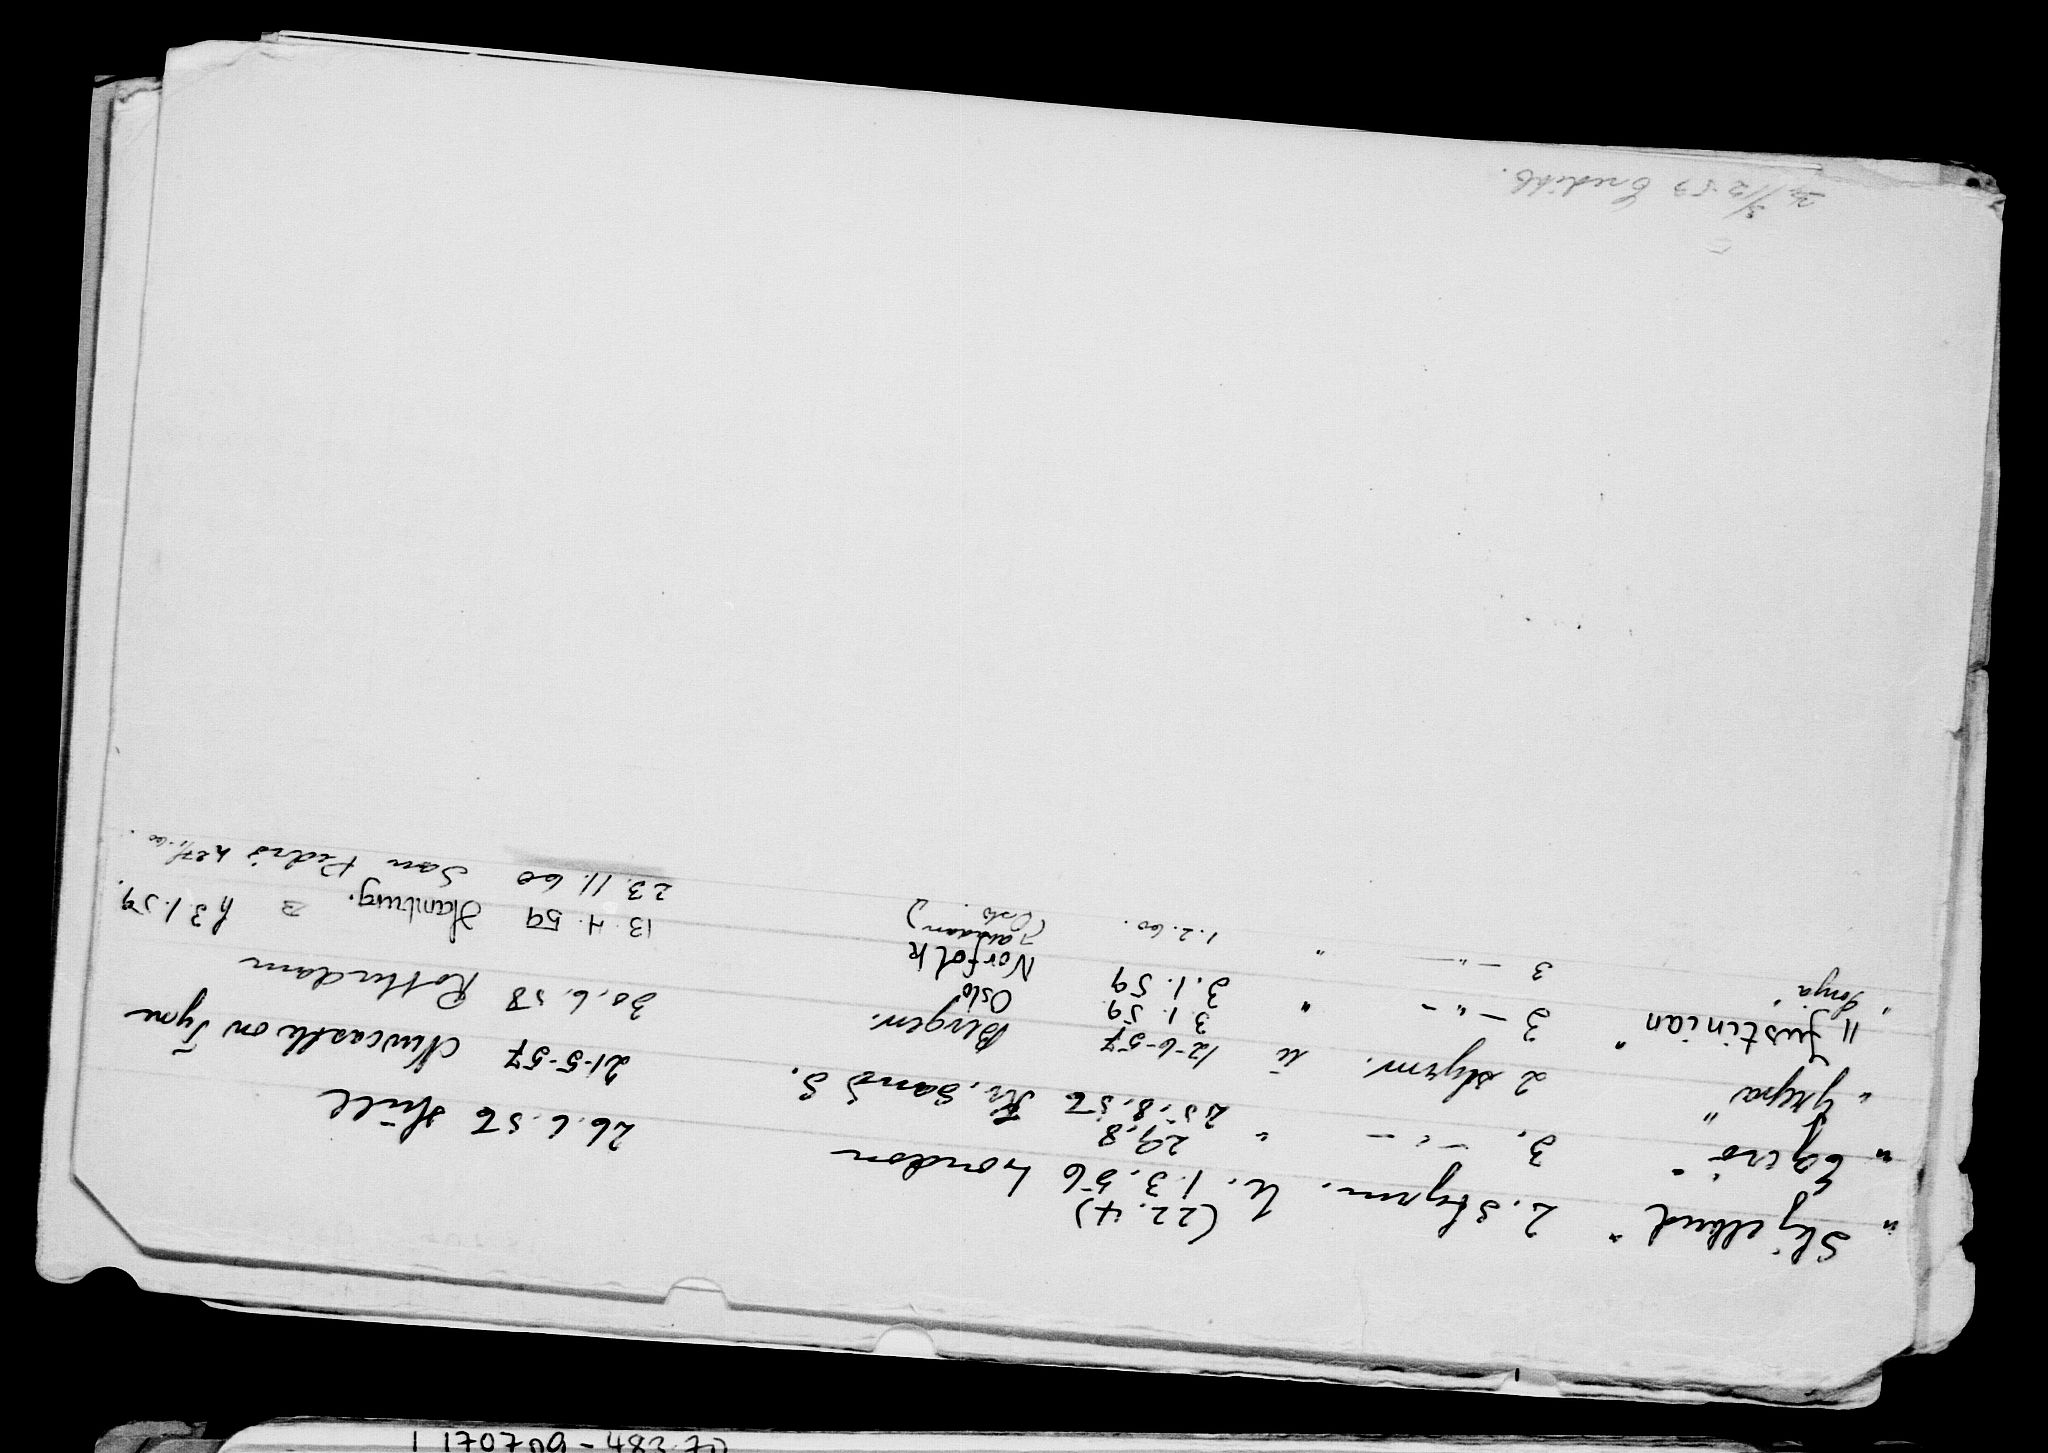 " Skjelbred " 2. Styrm. U. 1.3.56 London 26.6.56 Hull
(22.4)
" Egerø " 3. -"- " 29.8
25.8.56 Kr.sand S.
" Freya " 2 styrm. U 12-6-57 Bergen. 21-5-57 Newcastle on Tyne
" Justinian " 3 -"- " 3.1.59. Oslo 30.6.58 Rotterdam
3.1.59 Norfolk 13.4.59 Hamburg. h 3 1.59.
" Sonja " 3 -"- " 1.2.60. (Oslo) 23.11.60 San Pedro
3/12 59